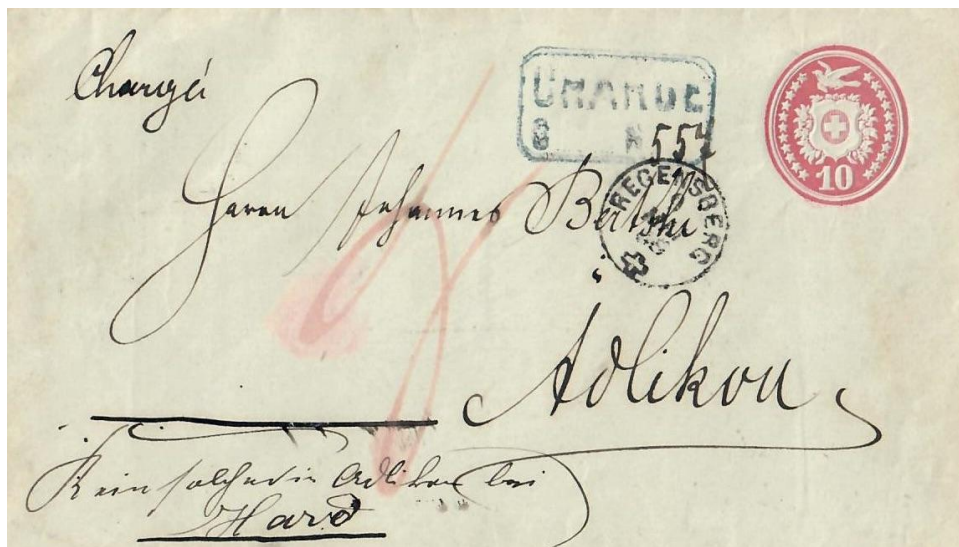 Chargé
CHARGÉ
N 557
10
REGENSBERG
Herrn Johannes
Adlikon
Kein solcher in Adlikon bei
Hard